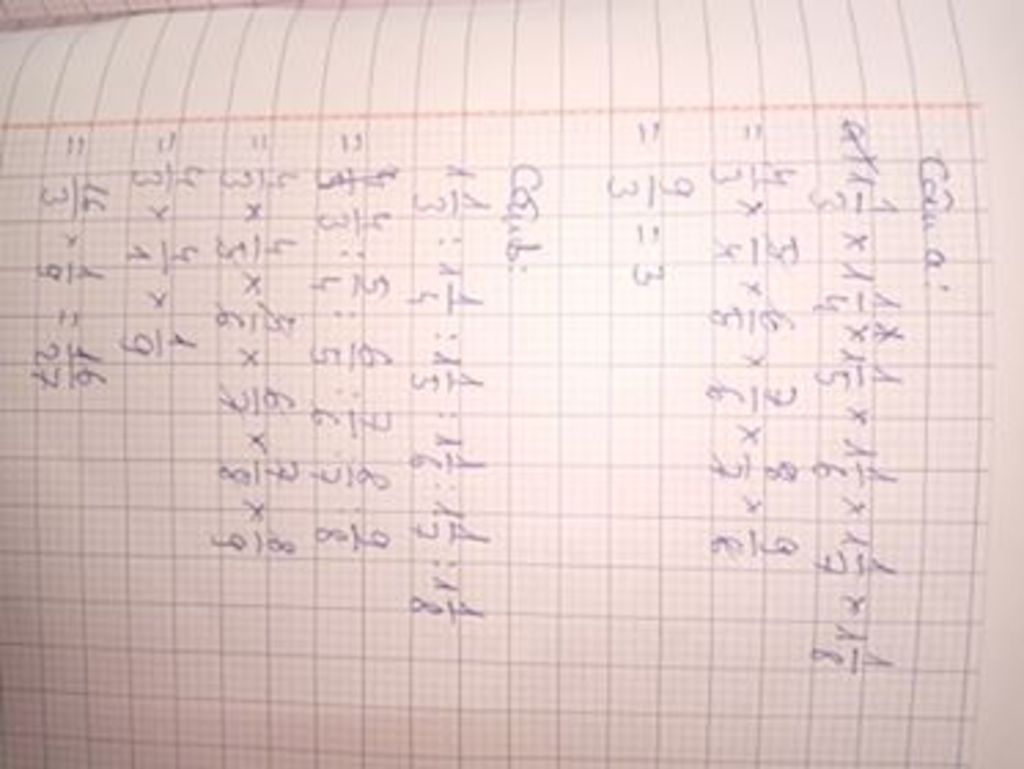 Câu a:
1 1/3 × 1 1/4 × 1 1/5 × 1 1/6 × 1 1/7 × 1 1/8
= 4/3 × 5/4 × 6/5 × 7/6 × 8/7 × 9/8
= 9/3 = 3
Câu b:
1 1/3 : 1 1/4 : 1 1/5 : 1 1/6 : 1 1/7 : 1 1/8
= 4/3 : 5/4 : 6/5 : 7/6 : 8/7 : 9/8
= 4/3 × 4/5 × 5/6 × 6/7 × 7/8 × 8/9
= 4/3 × 4/1 × 1/9
= 16/3 × 1/9 = 16/27